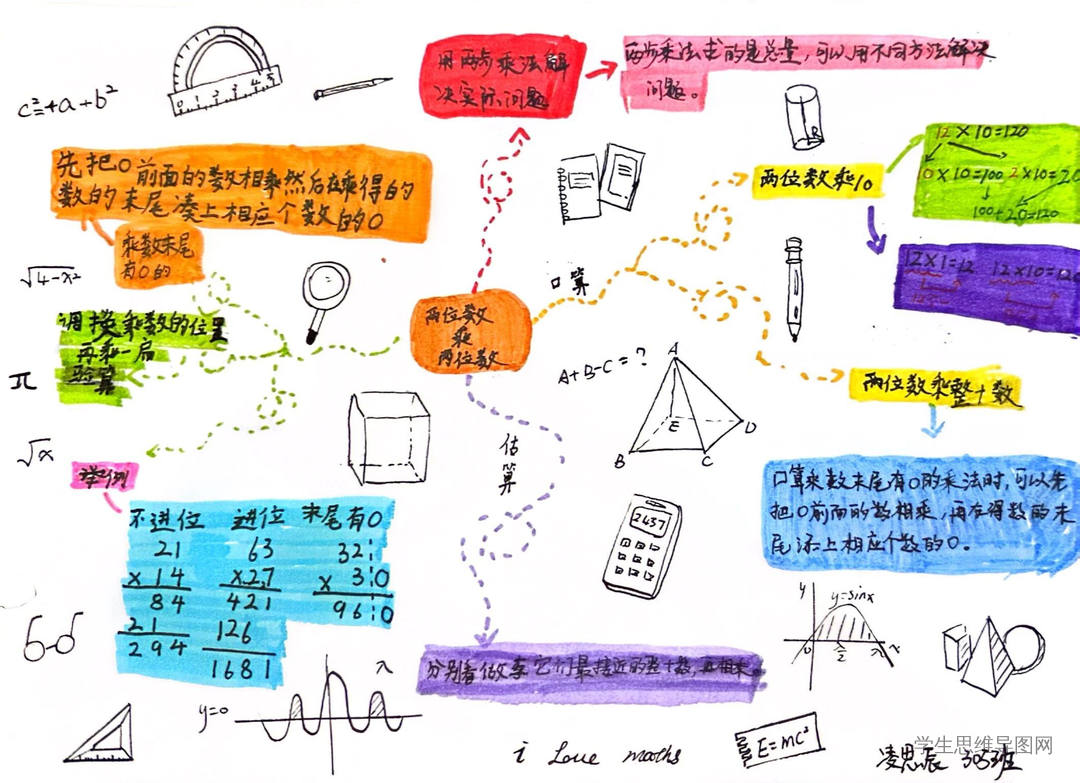 用两步乘法解
决实际问题
两步乘法求的是总量,可以用不同方法解决
问题。
c²=+a+b²
0 1 2 3 4 5
先把0前面的数相乘然后在乘得的
数的末尾凑上相应个数的0
乘数末尾
有0的
√4-x²
调换乘数的位置
再乘一启
验算
π
√x
两位数
乘
两位数
口算
两位数乘10
12×10=120
10×10=100 2×10=20
100+20=120
12×1=12 12×10=120
R
两位数乘整十数
口算乘数末尾有0的乘法时,可以先
把0前面的数相乘,再在得数的末
尾添上相应个数的0。
A+B-C=?
A
B
C
D
E
估算
2437
分别看做李它们最接近的整十数,再相乘。
举例
不进位 进位 末尾有0
21 63 32
×14 ×27 × 30
84 421 960
21 126
294 1681
y=0
λ
y
y=sinx
0
π/2
π
x
i Love maths
E=mc²
凌思辰 303班
学生思维导图网